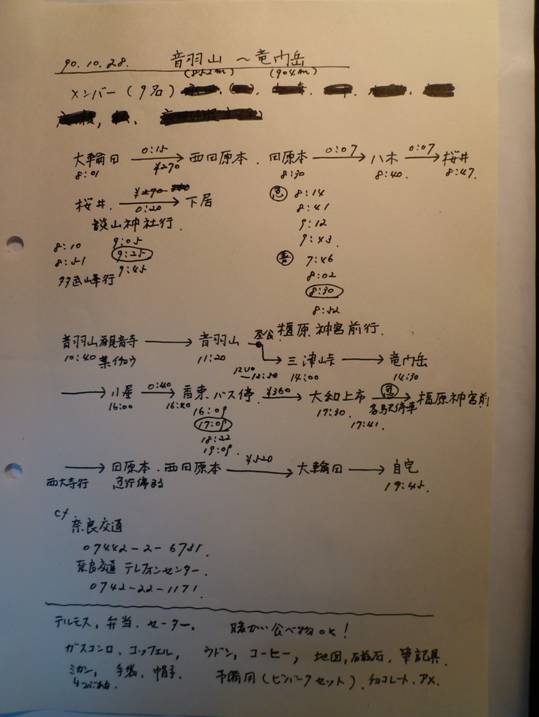 90.10.28. 音羽山 ～竜門岳
(852m) (904m)
メンバー(9名)
大輪田 0:15 ¥270 西田原本. 田原本 0:07 八木 0:07 桜井
8:01 8:30 8:40. 8:47.
桜井. ¥290 0:20 下居
談山神社行.
8:10 9:05
8:51 9:25
多武峰行 9:45
急 8:14
8:41
9:12
9:43
7:46
8:02
8:30
8:52
橿原神宮前行.
音羽山観音寺 音羽山 昼食 三津峠 竜門岳
10:40 11:20 14:00 14:30
小屋 0:40 バス停. ¥360 大和上市 急 橿原神宮前
16:00 16:40 17:30 17:41.
16:09
17:09
18:22
19:09
田原本. 西田原本 ¥520 大輪田 自宅
西大寺行 急行停る 19:45.
cf 奈良交通
07442-2-6751.
奈良交通 テレフォンセンター.
0742-22-1171.
テルモス, 弁当. セーター. 暖かい食べ物OK!
ガスコンロ. コッフェル, ウドン, コーヒー, 地図, 磁石, 筆記具.
ミカン, 手袋, 帽子 予備用(ビバークセット), チョコレート, アメ.